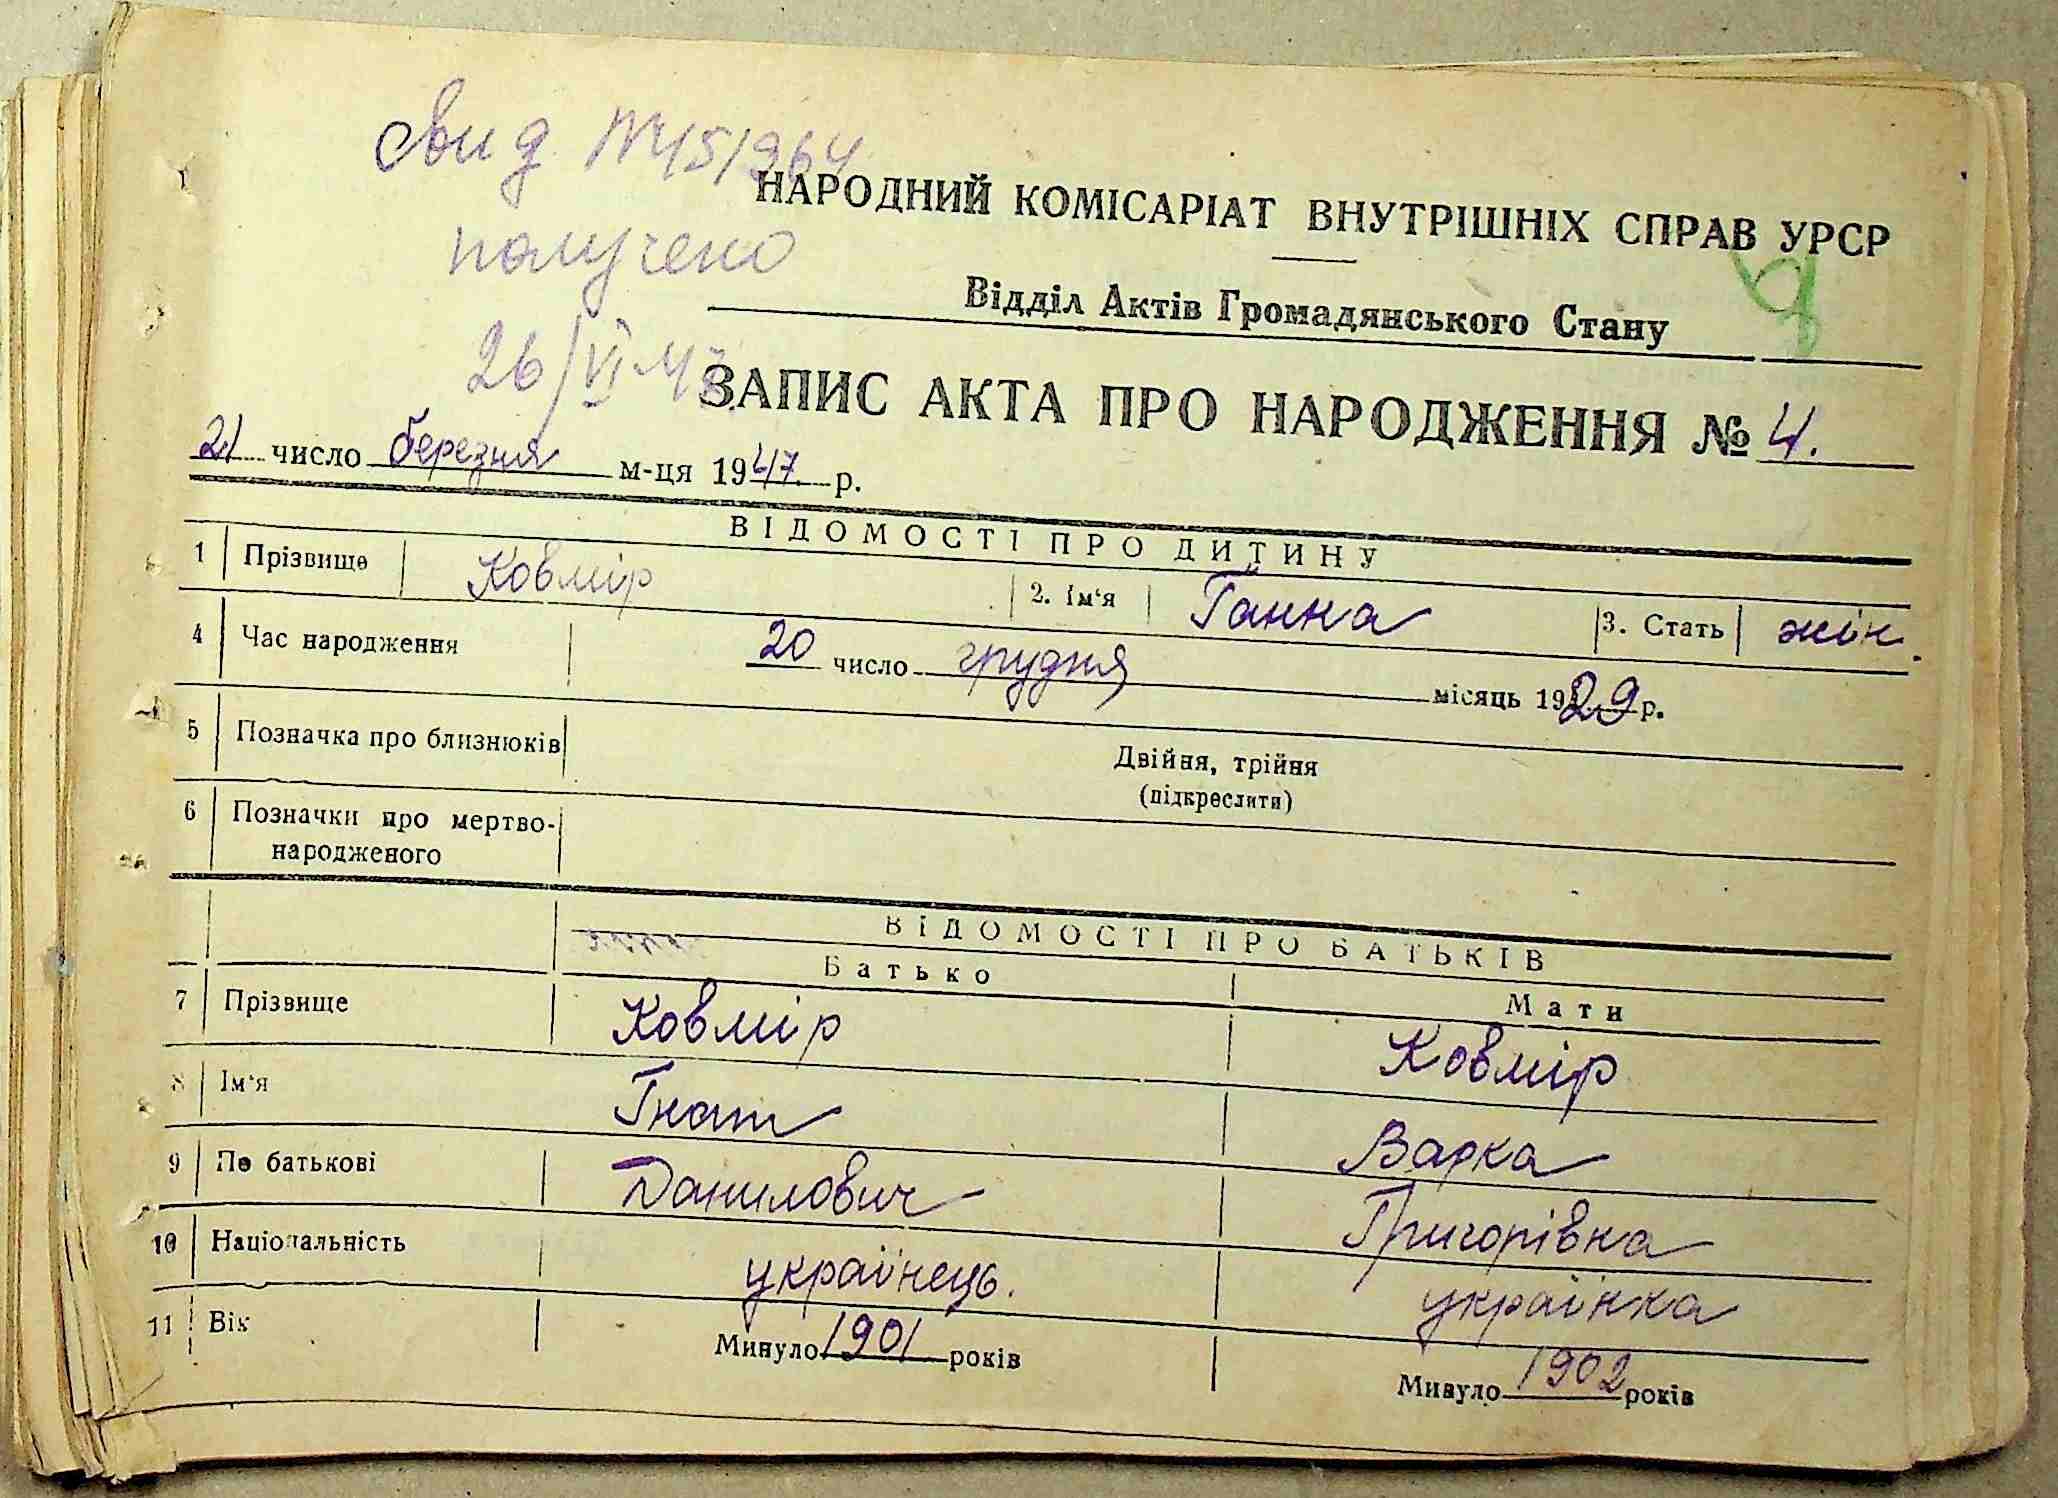 свид №451964
получено
НАРОДНИЙ КОМІСАРІАТ ВНУТРІШНІХ СПРАВ УРСР
Відділ Актів Громадянського Стану
26/VI
ЗАПИС АКТА ПРО НАРОДЖЕННЯ № 4.
21 число березня м-ця 1947 р.
ВІДОМОСТІ ПРО ДИТИНУ
1 Прізвище Ковмір 2. Ім'я Ганна 3. Стать жін.
4 Час народження 20 число грудня місяць 1929 р.
5 Позначка про близнюків Двійня, трійня
(підкреслити)
6 Позначки про мертво-
народженого
ВІДОМОСТІ ПРО БАТЬКІВ
Батько Мати
7 Прізвище Ковмір Ковмір
8 Ім'я Гнат Варка
9 По батькові Данилович Григорівна
10 Національність українець. українка
11 Вік Минуло 1901 років Минуло 1902 років